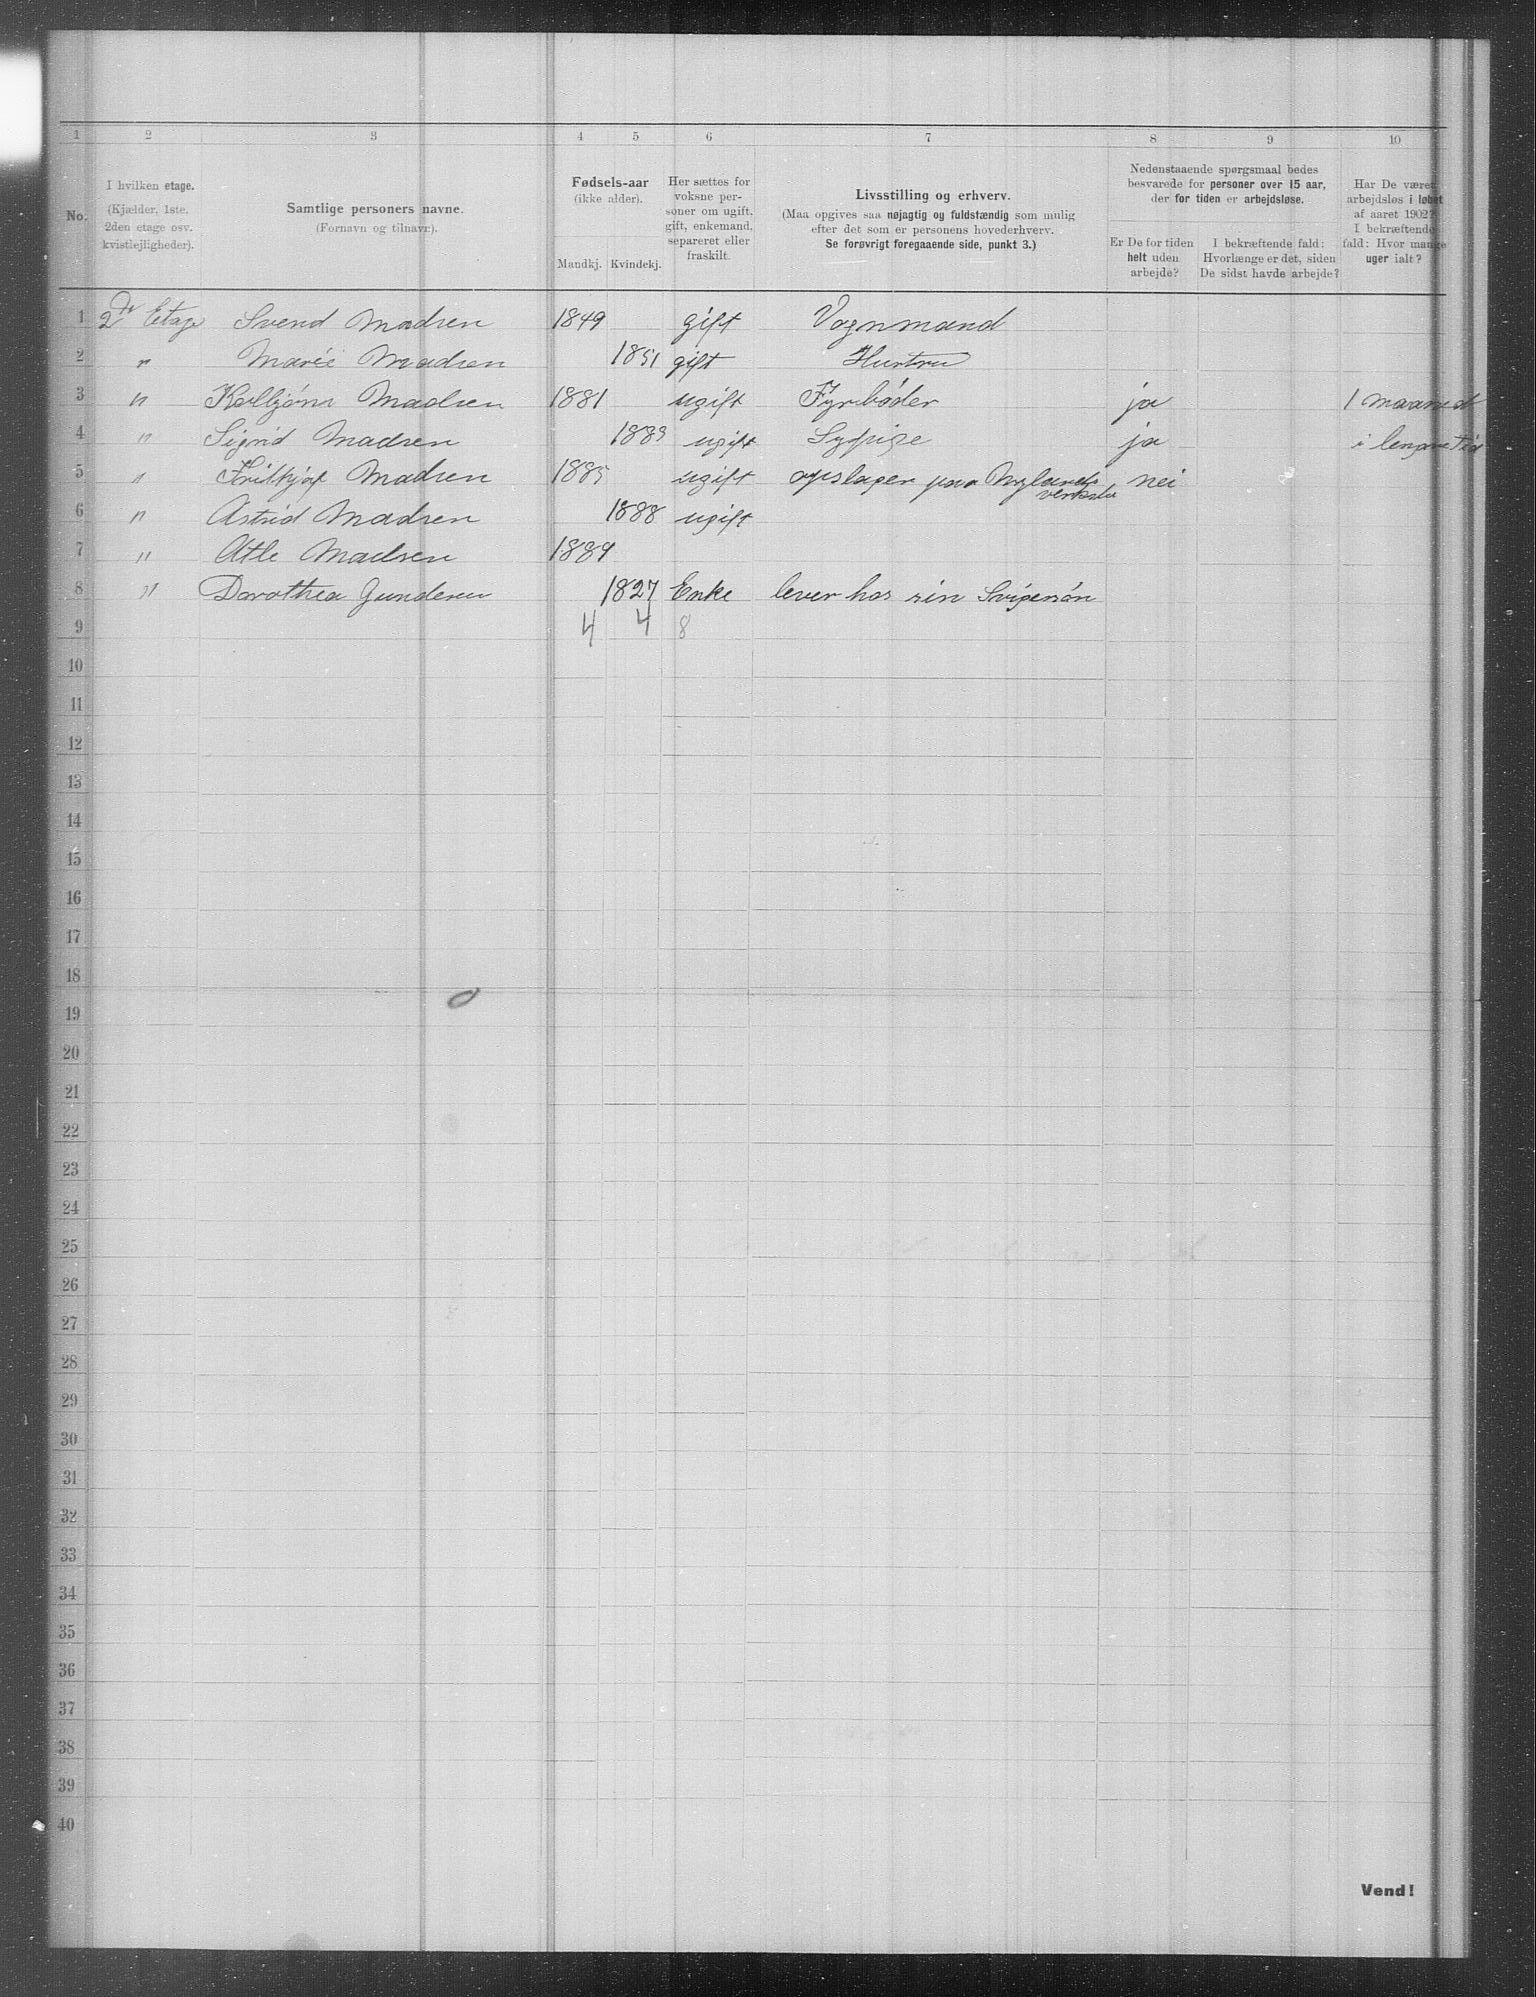 1 2 3 4 5 6 7 8 9 10
No.
I hvilken etage.
(Kjælder, 1ste,
2den etage osv.
kvistlejligheder).
Samtlige personers navne.
(Fornavn og tilnavn).
Fødsels-aar
(ikke alder).
Mandkj. Kvindekj.
Her sættes for
voksne per-
soner om ugift,
gift, enkemand,
separeret eller
fraskilt.
Livsstilling og erhverv.
(Maa opgives saa nøjagtig og fuldstændig som mulig
efter det som er personens hovederhverv.
Se forøvrigt foregaaende side, punkt 3.)
Nedenstaaende spørgsmaal bedes
besvarede for personer over 15 aar,
der for tiden er arbejdsløse.
Er De for tiden
helt uden
arbejde?
I bekræftende fald:
Hvorlænge er det, siden
De sidst havde arbejde?
Har De været
arbejdsløs i løbet
af aaret 1902?
I bekræftende
fald: Hvor mange
uger ialt?
1 2 Etage Svend Madsen 1849 gift Vognmand
2 " Marie Madsen 1851 gift Hustru
3 " Madsen 1881 ugift Fyrbøder ja 1 maaned
4 " Sigrid Madsen 1883 ugift Sypige ja i lengre Tid
5 " Fritkjof Madsen 1885 ugift opslager paa Nylands nei
verksted
6 " Astrid Madsen 1888 ugift
7 " Atle Madsen 1889
8 " Dorothea Gundersen 1827 Enke lever hos sin Svigersøn
9 4 4 8
10
11
12
13
14
15
16
17
18
19
20
21
22
23
24
25
26
27
28
29
30
31
32
33
34
35
36
37
38
39
40
Vend!